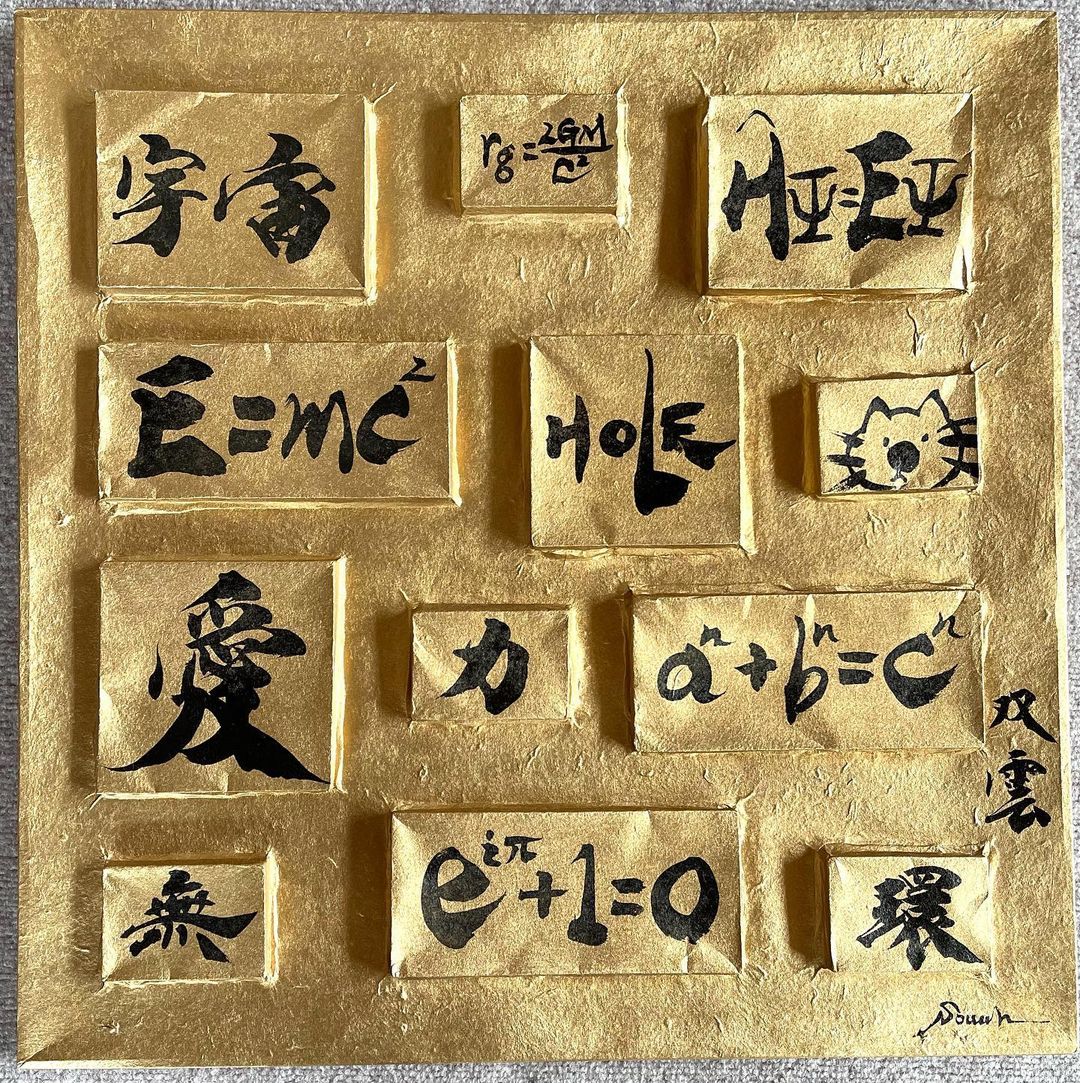 宇宙
rg=2GM/C²
ĤΨ=EΨ
E=mc²
HOLE
愛
力
aⁿ+bⁿ=cⁿ
双雲
無
e^{iπ}+1=0
環
Souun